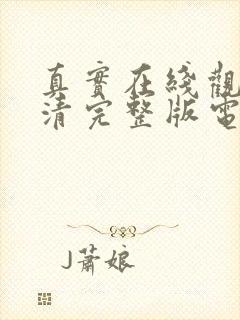 真實在綫觀
清完整版電
J蕭娘